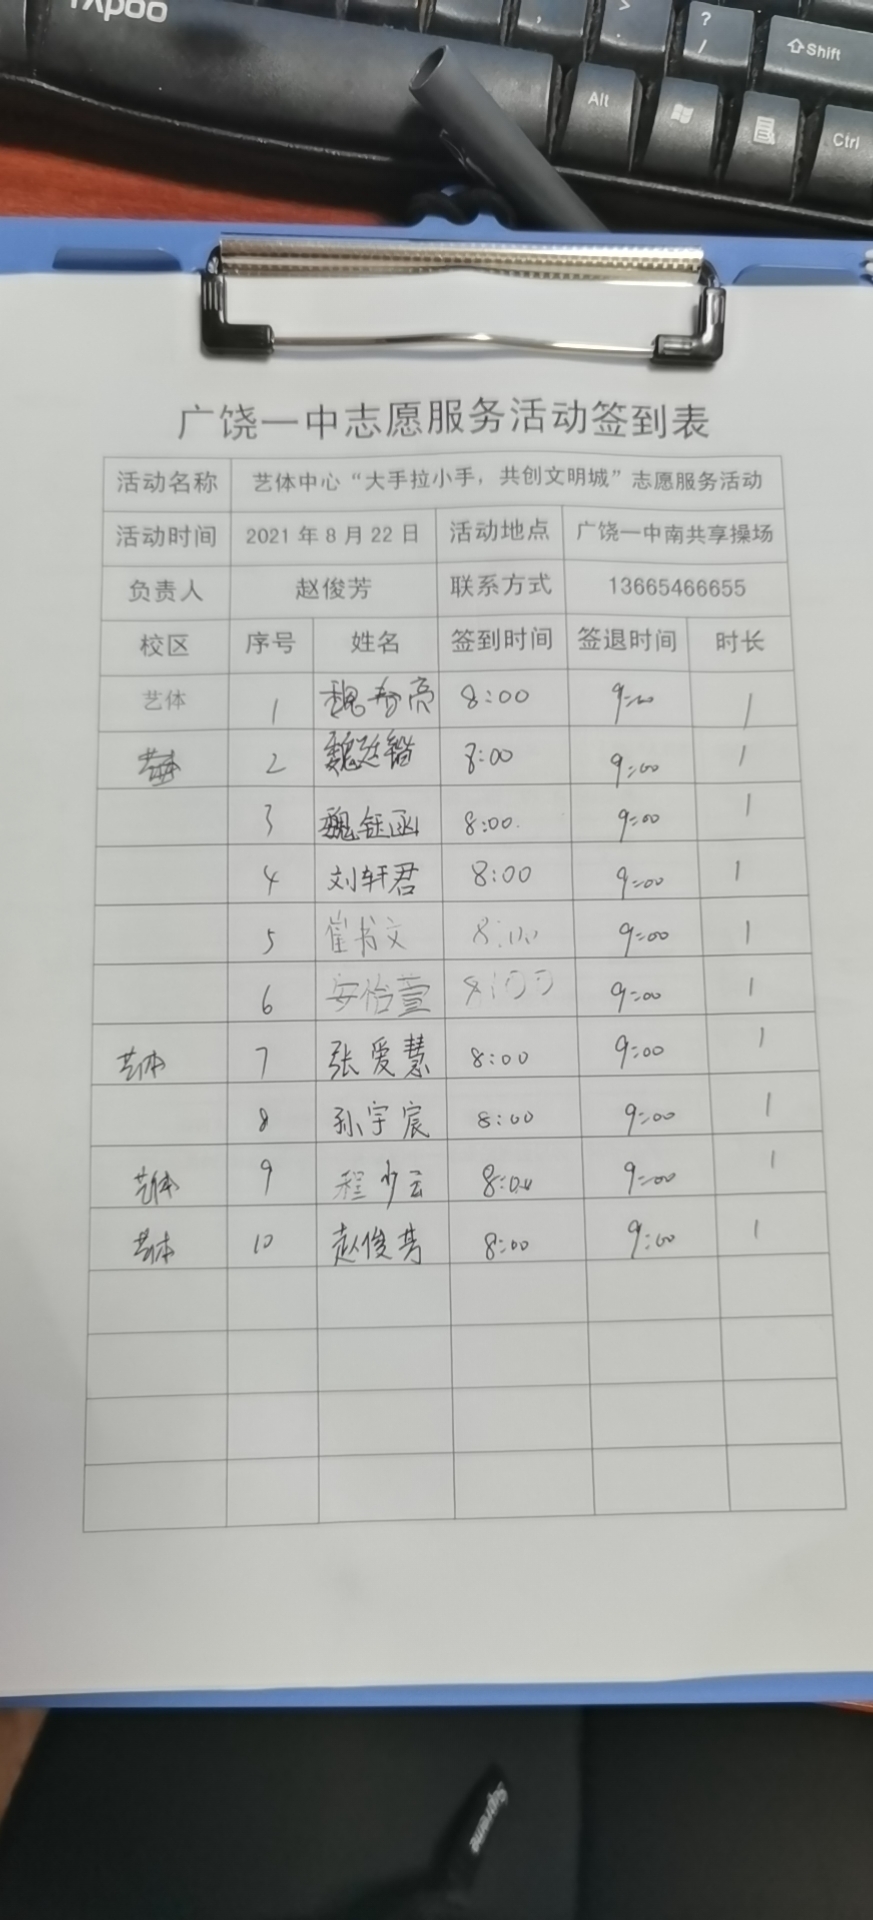 Rapoo
Shift
Alt
Ctrl
广饶一中志愿服务活动签到表
活动名称 艺体中心“大手拉小手，共创文明城”志愿服务活动
活动时间 2021 年 8 月 22 日 活动地点 广饶一中南共享操场
负责人 赵俊芳 联系方式 13665466655
校区 序号 姓名 签到时间 签退时间 时长
艺体 1 魏春亮 8:00 9:00 1
2 魏廷锴 8:00 9:00 1
3 魏钰函 8:00 9:00 1
4 刘轩君 8:00 9:00 1
5 崔书文 8:00 9:00 1
6 安怡萱 8:00 9:00 1
艺体 7 张爱慧 8:00 9:00 1
8 孙宇宸 8:00 9:00 1
艺体 9 程少云 8:00 9:00 1
艺体 10 赵俊芳 8:00 9:00 1
Supreme